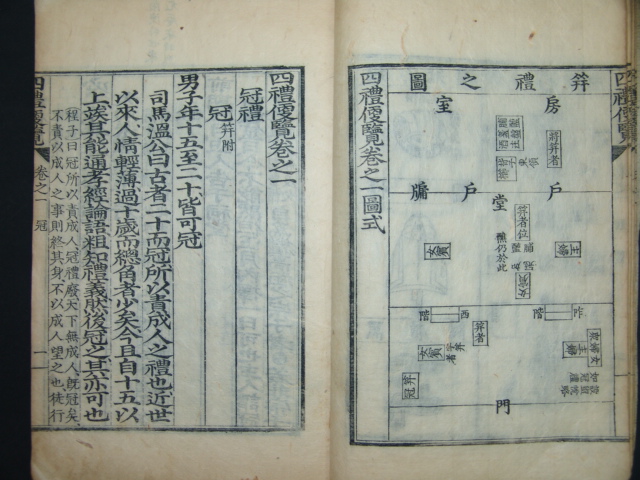 四禮便覽
圖之禮笄
房
室
將笄者
戶
戶
牖
堂
笄者位
主婦
女賓
阼階
西階
笄者
女賓
門
四禮便覽卷之一圖式
四禮便覽卷之一
冠禮
冠 笄附
男子年十五至二十皆可冠
司馬溫公曰古者二十而冠所以責成人之禮也近世
以來人情輕薄過十歲而總角者少矣今且自十五以
上俟其能通孝經論語粗知禮義然後冠之其亦可也
程子曰冠所以責成人冠禮廢天下無成人旣冠矣
不責以成人之事則終其身不以成人望之也徒行
四禮便覽
卷之一
冠
一